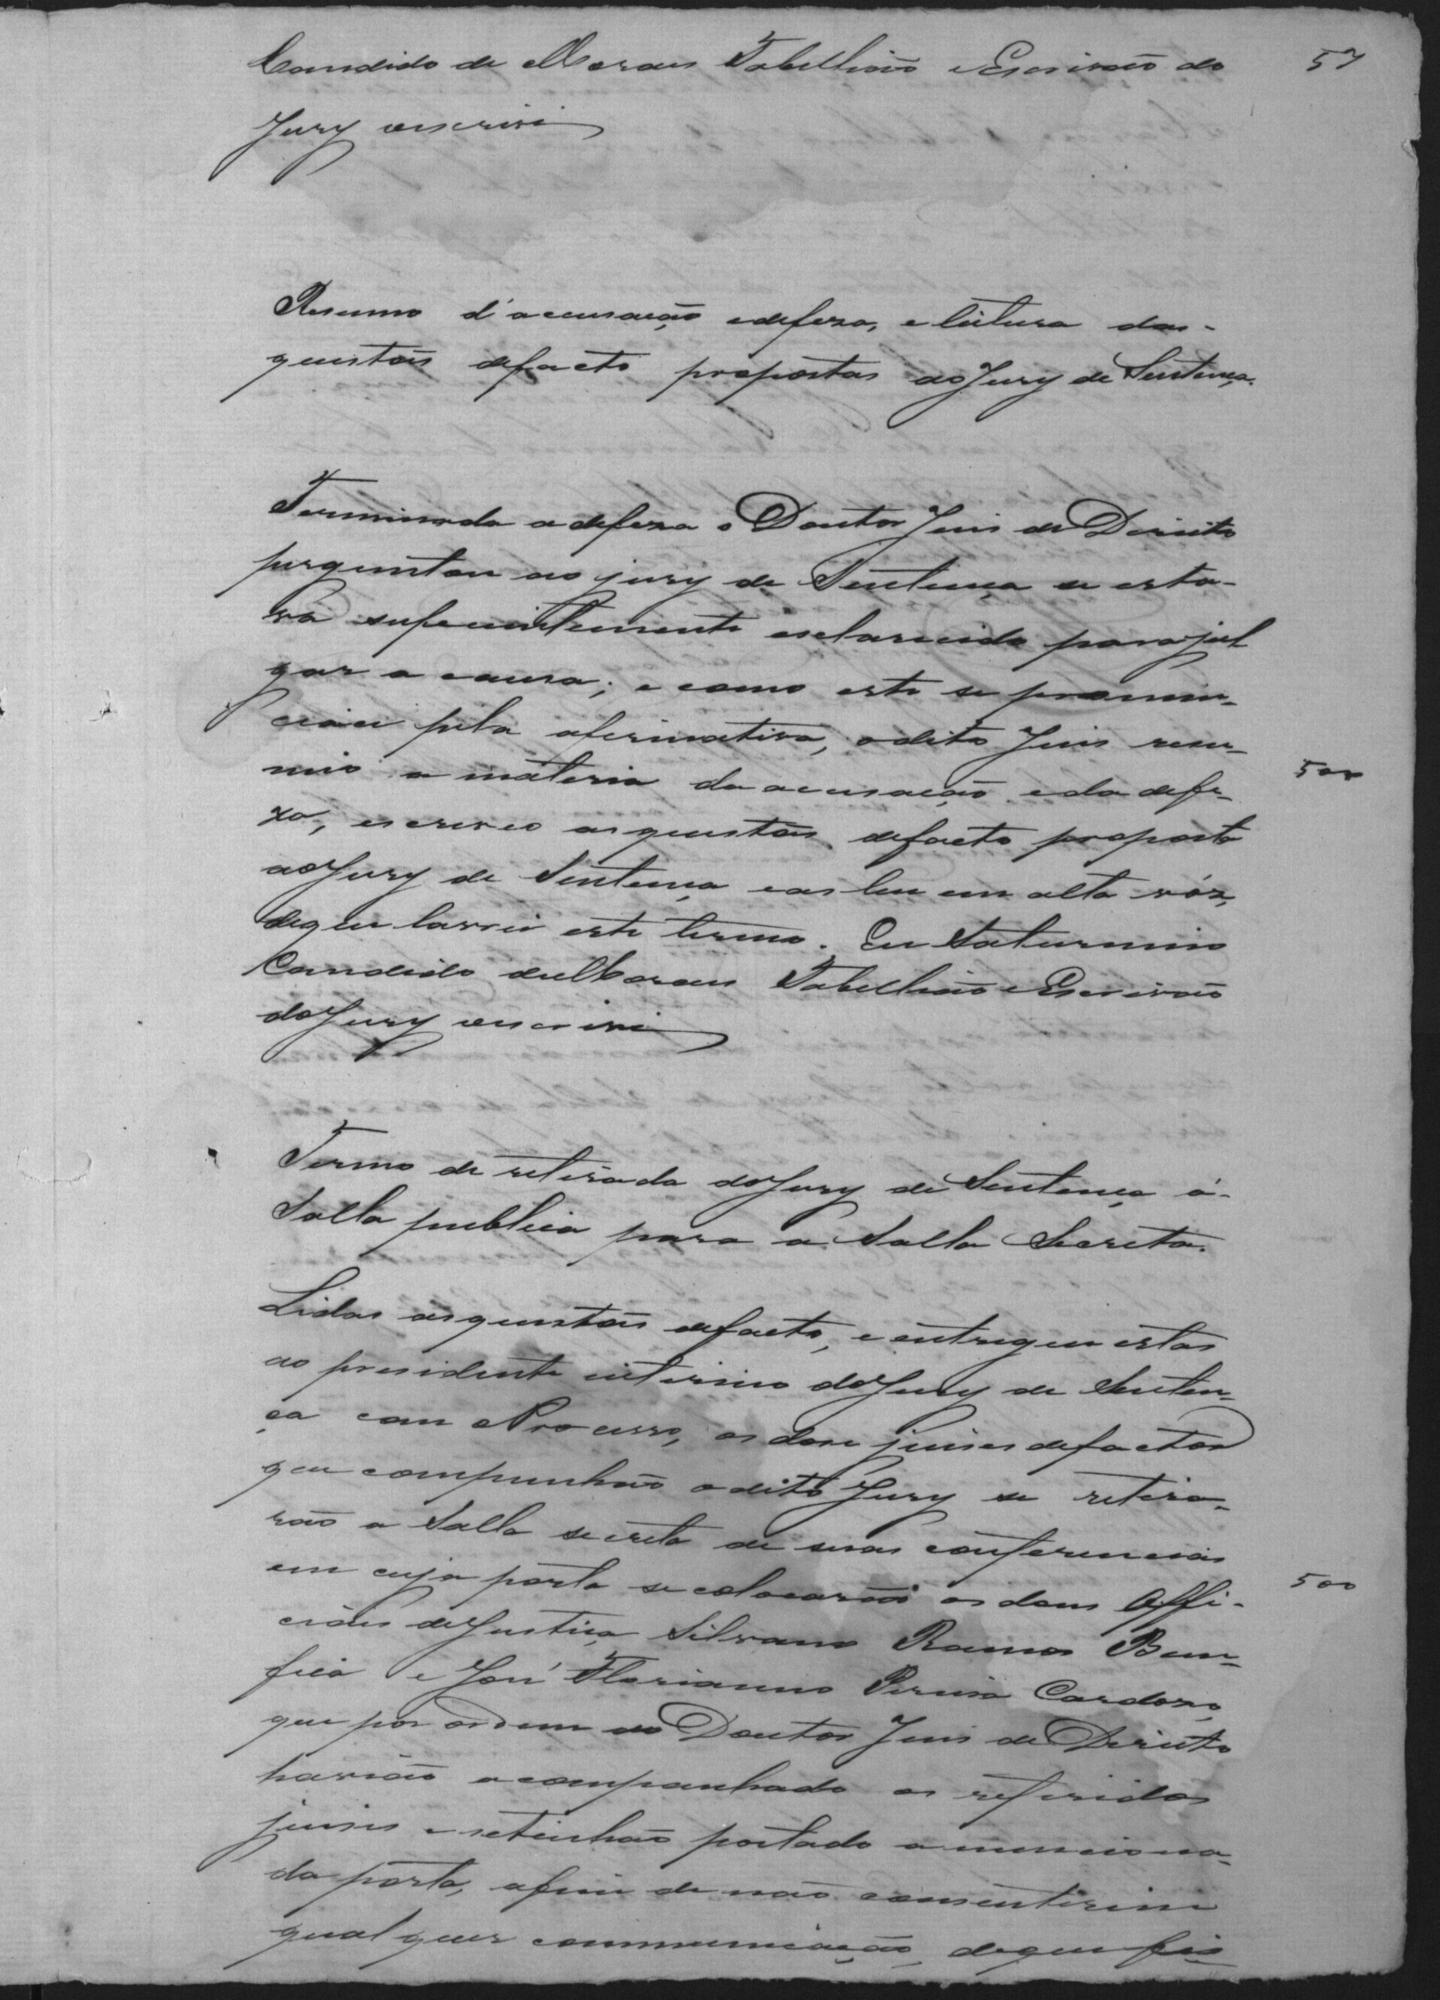 Candido de Moraes Tabellião e Escrivão do
57
Jury o escrivi
Resumo d'accusação e defeza, e leitura das
questões de facto propostas ao Jury de Sentença.
Terminada a defeza o Doutor Juis de Direito
perguntou ao jury de Sentença se esta-
va suficientemente esclarecido para jul
gar a causa; e como este se pronun-
ciou pela afirmativa, o dito Juis resu-
mio a materia da acusação e da defe-
500
za, escreveo as questões de facto proposta
ao Jury de Sentença e as leu em alta vóz,
de que lavrei este termo. Eu Saturnino
Candido de Moraes Tabellião e Escrivão
do Jury o escrivi
Termo de retirada do Jury de Sentença á
Salla publica para a Salla Secreta.
Lidas as questões de facto, e entregue estas
ao presidente interino do Jury de Senten-
ça com o Processo, os doze juises de facto
que compunhão o dito Jury se retira-
rão a Salla secreta de suas conferencias
em cuja porta se colocarão os dous Offi-
500
ciaes de Justiça Silvano Ramos Bem-
fica e José Florianno Pereira Cardozo,
que por ordem do Doutor Juis de Direito
havião acompanhado os referidos
juises e se tinhão postado a menciona-
da porta, afim de não consentirem
qualquer communicação, de que fis